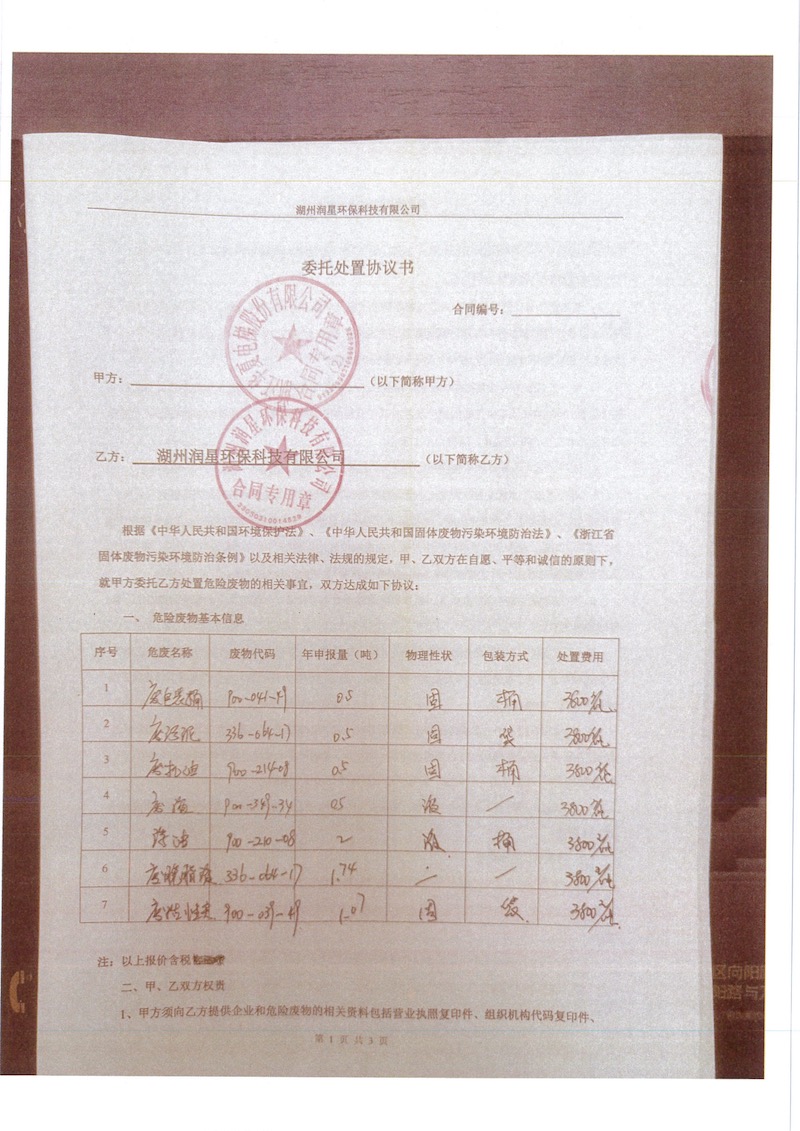 湖州润星环保科技有限公司
委托处置协议书
合同编号：
甲方： （以下简称甲方）
电梯股份有限公司
合同专用章
(2)
乙方： 湖州润星环保科技有限公司 （以下简称乙方）
湖州润星环保科技有限公司
合同专用章
根据《中华人民共和国环境保护法》、《中华人民共和国固体废物污染环境防治法》、《浙江省
固体废物污染环境防治条例》以及相关法律、法规的规定，甲、乙双方在自愿、平等和诚信的原则下，
就甲方委托乙方处置危险废物的相关事宜，双方达成如下协议：
一、 危险废物基本信息
序号 危废名称 废物代码 年申报量（吨） 物理性状 包装方式 处置费用
1 废包装桶 900-041-49 0.5 固 桶 3800元/吨
2 废污泥 336-064-17 0.5 固 袋 3800元/吨
3 900-214-08 0.5 固 桶 3800元/吨
4 废酸 900-349-34 0.5 液 / 3800元/吨
5 900-210-08 2 液 桶 3800元/吨
6 336-064-17 1.74 / 3800元/吨
7 废活性炭 900-039-49 1.07 固 袋 3800元/吨
注：以上报价含税
二、甲、乙双方权责
1、甲方须向乙方提供企业和危险废物的相关资料包括营业执照复印件、组织机构代码复印件、
第 1 页 共 3 页
区向阳
阳路与